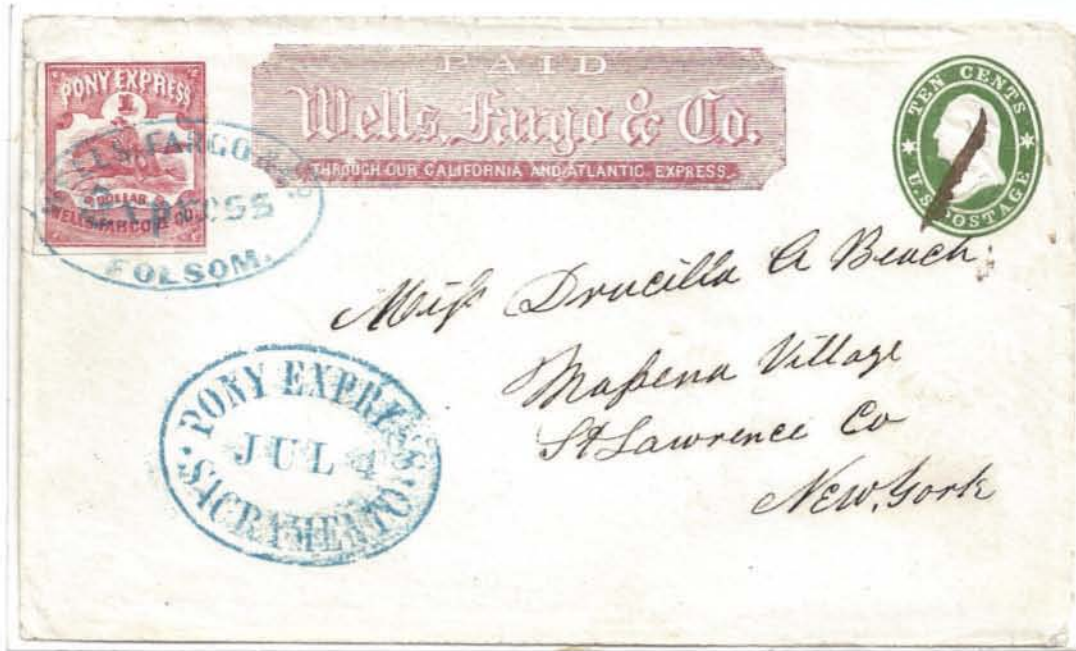 PONY EXPRESS
1
DOLLAR
WELLS, FARGO & CO.
WELLS, FARGO & CO
EXPRESS
FOLSOM.
PAID
Wells, Fargo & Co.
THROUGH OUR CALIFORNIA AND ATLANTIC EXPRESS.
TEN CENTS
U.S. POSTAGE
Miſs Drucilla A Beach
Maſsena Village
St Lawrence Co
New, York
PONY EXPRESS
JUL 4
SACRAMENTO